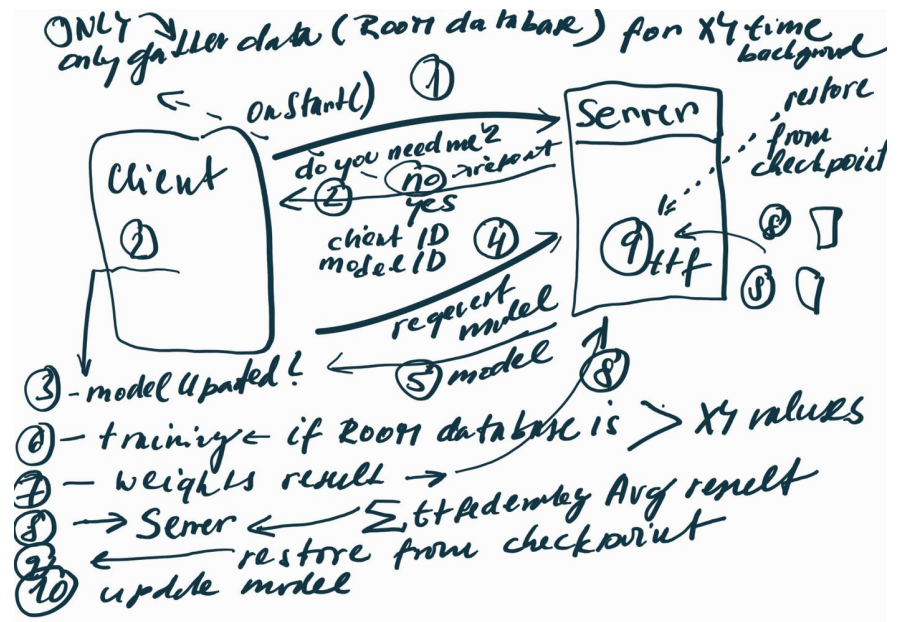 ONLY
only gather data (Room database) for XY time
background
onStart()
1
restore
from
checkpoint
Server
do you need me?
no → repeat
2
yes
client ID
model ID
Client
2
4
request
model
5 model
9 ttf
8
8
8
3 - model Upated?
6 - training ← if Room database is > XY values
7 - weights result →
8 → Server ← Σ ttf Avg result
9 ← restore from checkpoint
10 update model